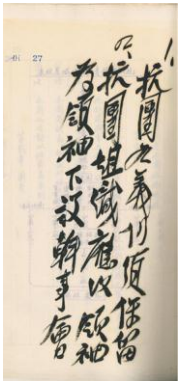 01 27
1、抗團名義仍須保留
2、抗團組織應以領袖
為領袖下設幹事會